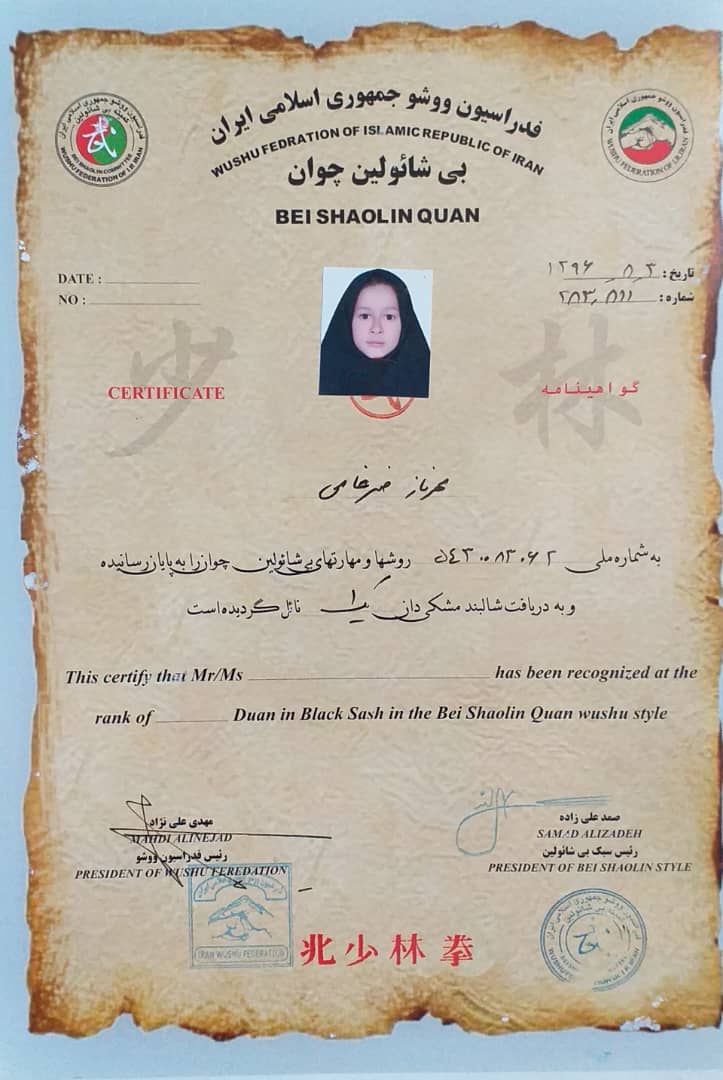 فدراسیون ووشو جمهوری اسلامی ایران
WUSHU FEDRATION OF ISLAMIC REPUBLIC OF IRAN
بی شائولین چوان
BEI SHAOLIN QUAN
DATE :
NO :
تاریخ : ۱۳۹۶/۸/۳
شماره : ۲۸۳٫۸۱۱
少 林
CERTIFICATE
گواهینامه
مهرناز ضرغامی
به شماره ملی ۵۴۳۰۰۸۳۰۶۲ روشها و مهارتهای بی شائولین چوان را به پایان رسانیده
و به دریافت شالبند مشکی دان یک نائل گردیده است
This certify that Mr/Ms has been recognized at the
rank of Duan in Black Sash in the Bei Shaolin Quan wushu style
مهدی علی نژاد
MAHDI ALINEJAD
رئیس فدراسیون ووشو
PRESIDENT OF WUSHU FEREDATION
صمد علی زاده
SAMAD ALIZADEH
رئیس سبک بی شائولین
PRESIDENT OF BEI SHAOLIN STYLE
IRAN WUSHU FEDERATION
北少林拳